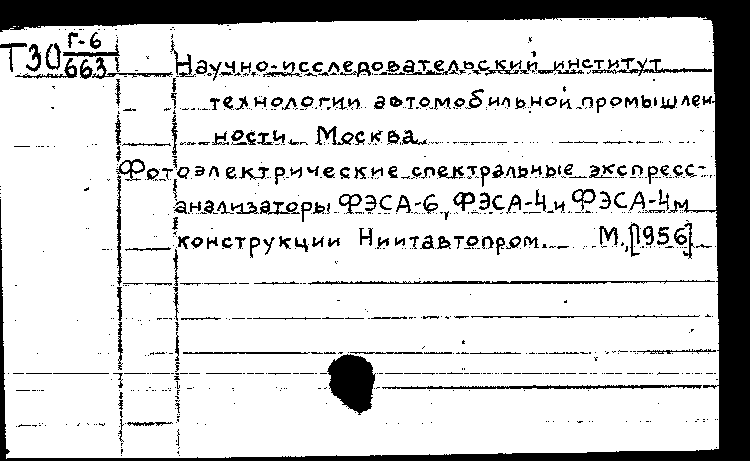 Т30 Г-6/663
Научно-исследовательский институт
технологии автомобильной промышлен
ности. Москва.
Фотоэлектрические спектральные экспресс-
анализаторы ФЭСА-6, ФЭСА-4 и ФЭСА-4м
конструкции Ниитавтопром. М., [1956]